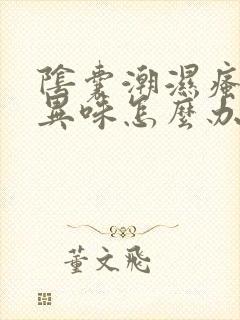 陰囊潮濕瘙
異味怎麼办
董文飛